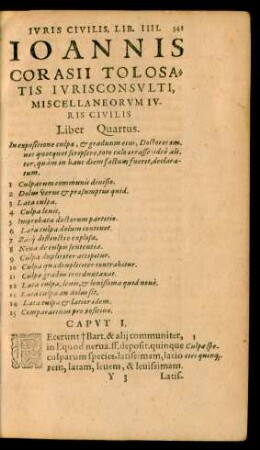 IVRIS CIVILIS. LIB. IIII. 341
IOANNIS
CORASII TOLOSA-
TIS IVRISCONSVLTI,
MISCELLANEORVM IV-
RIS CIVILIS
Liber Quartus.
In expositione culpæ, & graduum eius, Doctores om-
nes quotquot scripsere, toto cœlo errasse: idéo ali-
ter, quàm in hanc diem factum fuerit, declara-
tum.
1 Culparum communis diuisio.
2 Dolus verus & præsumptus quid.
3 Lata culpa.
4 Culpa leuis.
5 Improbata doctorum partitio.
6 Lata culpa dolum continet.
7 Zasij distinctio explosa.
8 Noua de culpis sententia.
9 Culpa dupliciter accipitur.
10 Culpa quadrupliciter contrahitur.
11 Culpæ gradus tres dumtaxat.
12 Lata culpa, leuis, & leuissima quid nouè.
13 Lata culpa an dolus sit.
14 Lata culpa & latior eadem.
15 Comparatiuum pro positiuo.
CAPVT I.
FEcerunt † Bart. & alij communiter,
in l. quod nerua. ff. deposit. quinque Culpæ spe-
culparum species. latissimam, latio- cies quinq;
rem, latam, leuem, & leuissimam.
Y 3 Latis-